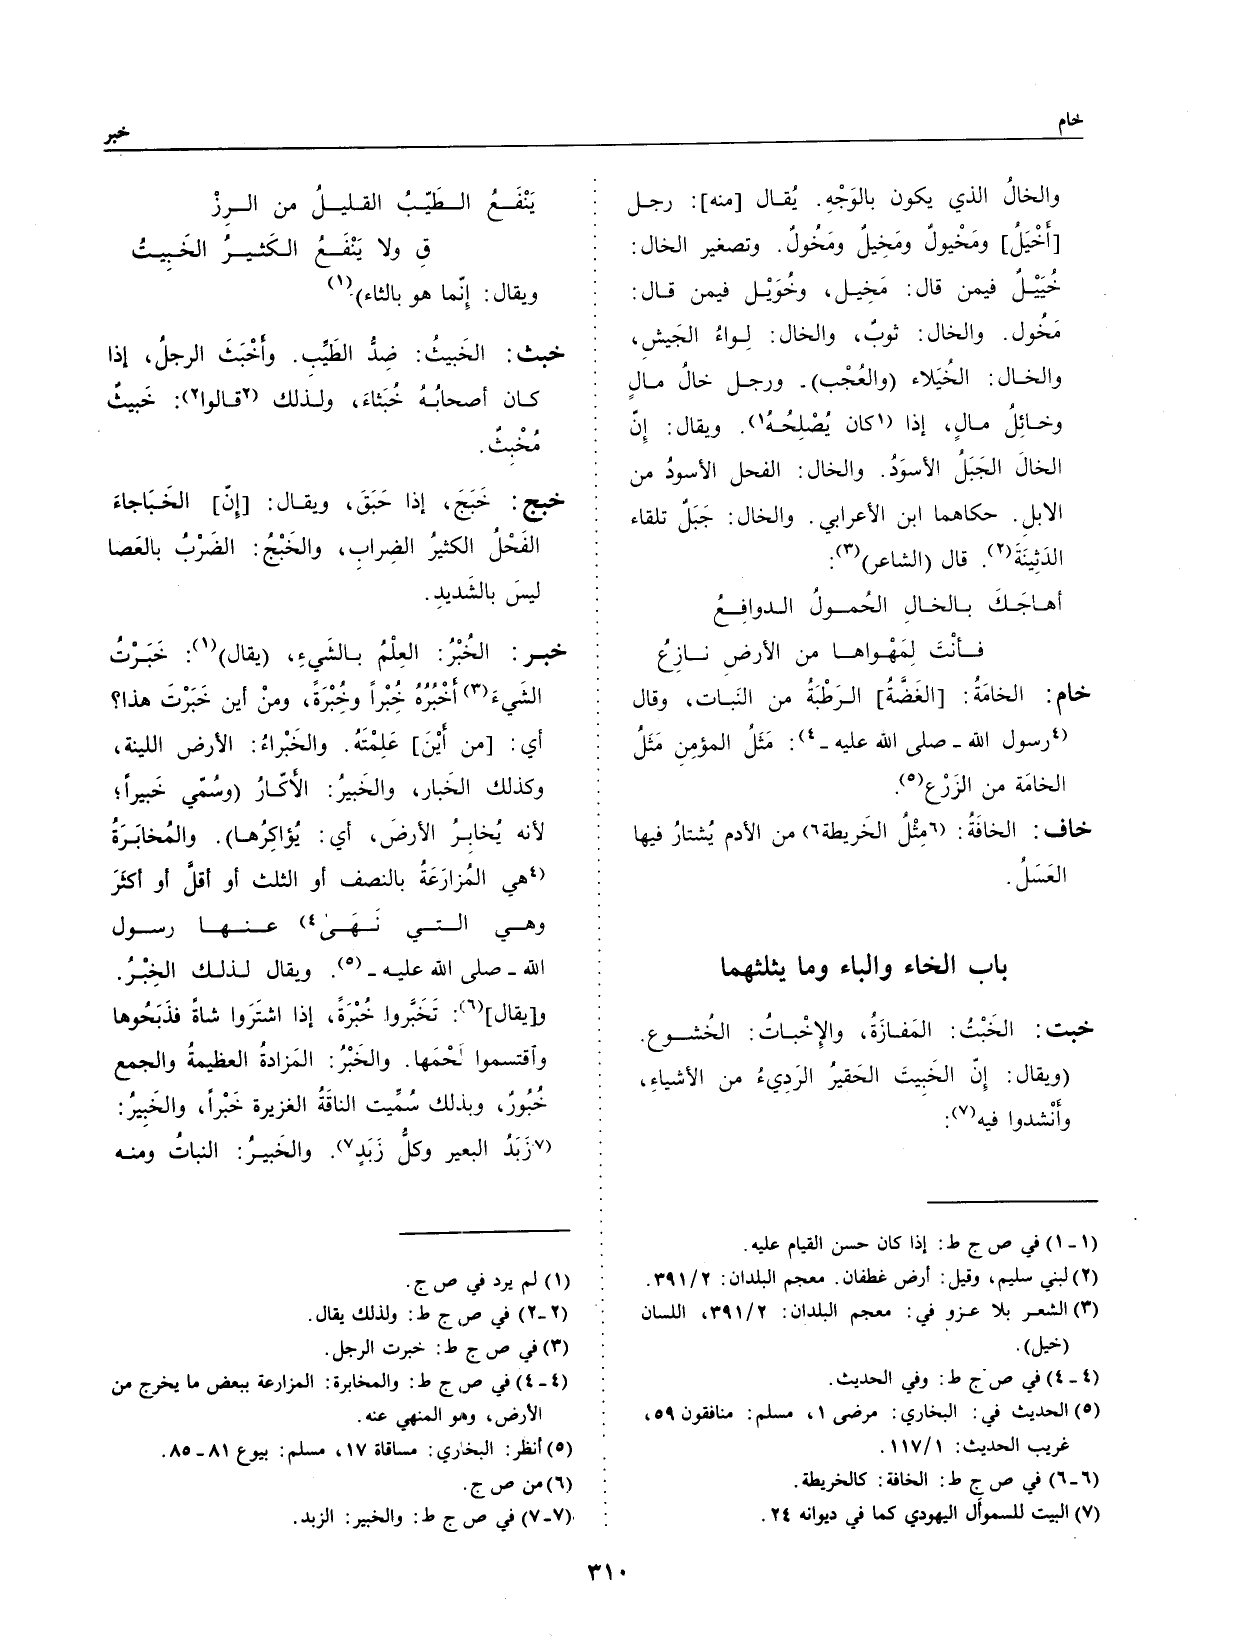 خام
خبر
والخالُ الذي يكون بالوَجْهِ. يُقال [منه]: رجل
[أَخْيَلُ] ومَخْيولٌ ومَخيلٌ ومَخُولٌ. وتصغير الخال:
خُيَيْلٌ فيمن قال: مَخيل، وخُوَيْل فيمن قال:
مَخُول. والخال: ثوبٌ، والخال: لواءُ الجَيش،
والخال: الخُيَلاء (والعُجْب). ورجل خالُ مالٍ
وخائِلُ مالٍ، إذا (١كان يُصْلِحُهُ١). ويقال: إنّ
الخالَ الجَبَلُ الأسوَدُ. والخال: الفحل الأسودُ من
الابل. حكاهما ابن الأعرابي. والخال: جَبَلٌ تلقاء
الدَثِينَةَ(٢). قال (الشاعر)(٣):
أهاجَكَ بالخالِ الحُمولُ الدوافِعُ
فأنْتَ لِمَهْواها من الأرضِ نازِعُ
خام: الخامَةُ: [الغَضَّةُ] الرَطْبَةُ من النَبات، وقال
(٤رسول الله - صلى الله عليه -٤): مَثَلُ المؤمِنِ مَثَلُ
الخامَة من الزَرْع(٥).
خاف: الخافَةُ: (٦مِثْلُ الخَريطة٦) من الأدم يُشتارُ فيها
العَسَلُ.
باب الخاء والباء وما يثلثهما
خبت: الخَبْتُ: المَفازَةُ، والإخْباتُ: الخُشوع.
(ويقال: إنّ الخَبيتَ الحَقيرُ الرَديءُ من الأشياءِ،
وأَنْشدوا فيه(٧):
يَنْفَعُ الطَيّبُ القليلُ من الرزْ
قِ ولا يَنْفَعُ الكَثيرُ الخَبيتُ
ويقال: إنّما هو بالثاء).(١)
خبث: الخَبيثُ: ضِدُّ الطَيِّبِ. وأَخْبَثَ الرجلُ، إذا
كان أصحابُهُ خُبَثاءَ، ولذلك (٢قالوا٢): خَبيثٌ
مُخْبِثٌ.
خبج: خَبَجَ، إذا حَبَقَ، ويقال: [إنّ] الخَبَاجاءَ
الفَحْلُ الكثيرُ الضِراب، والخَبْجُ: الضَرْبُ بالعَصا
ليسَ بالشَديدِ.
خبر: الخُبْرُ: العِلْمُ بالشَيءِ، (يقال)(١): خَبَرْتُ
الشَيءَ(٣) أَخْبُرُهُ خُبْراً وخُبْرَةً، ومنْ أين خَبَرْتَ هذا؟
أي: [من أَيْنَ] عَلِمْتَهُ. والخَبْراءُ: الأرض اللينة،
وكذلك الخَبار، والخَبيرُ: الأَكّارُ (وسُمّي خَبيراً؛
لأنه يُخابِرُ الأرضَ، أي: يُؤاكِرُها). والمُخابَرَةُ
(٤هي المُزارَعَةُ بالنصف أو الثلث أو أقلَّ أو أكثَرَ
وهي التي نَهَى٤) عنها رسول
الله - صلى الله عليه -(٥). ويقال لذلك الخِبْرُ.
و[يقال](٦): تَخَبَّروا خُبْرَةً، إذا اشتَرَوا شاةً فذَبَحُوها
وآقتسموا لَحْمَها. والخَبْرُ: المَزادةُ العظيمةُ والجمع
خُبُورٌ، وبذلك سُمِّيت الناقَةُ الغزيرة خَبْراً، والخَبِيرُ:
(٧زَبَدُ البعير وكلُّ زَبَدٍ٧). والخَبيرُ: النباتُ ومنه
(١-١) في ص ج ط: إذا كان حسن القيام عليه.
(٢) لبني سليم، وقيل: أرض غطفان. معجم البلدان: ٣٩١/٢.
(٣) الشعر بلا عزو في: معجم البلدان: ٣٩١/٢، اللسان
(خيل).
(٤-٤) في ص ج ط: وفي الحديث.
(٥) الحديث في: البخاري: مرضى ١، مسلم: منافقون ٥٩،
غريب الحديث: ١١٧/١.
(٦-٦) في ص ج ط: الخافة: كالخريطة.
(٧) البيت للسموأل اليهودي كما في ديوانه ٢٤.
(١) لم يرد في ص ج.
(٢-٢) في ص ج ط: ولذلك يقال.
(٣) في ص ج ط: خبرت الرجل.
(٤-٤) في ص ج ط: والمخابرة: المزارعة ببعض ما يخرج من
الأرض، وهو المنهي عنه.
(٥) أنظر: البخاري: مساقاة ١٧، مسلم: بيوع ٨١-٨٥.
(٦) من ص ج.
(٧-٧) في ص ج ط: والخبير: الزبد.
٣١٠